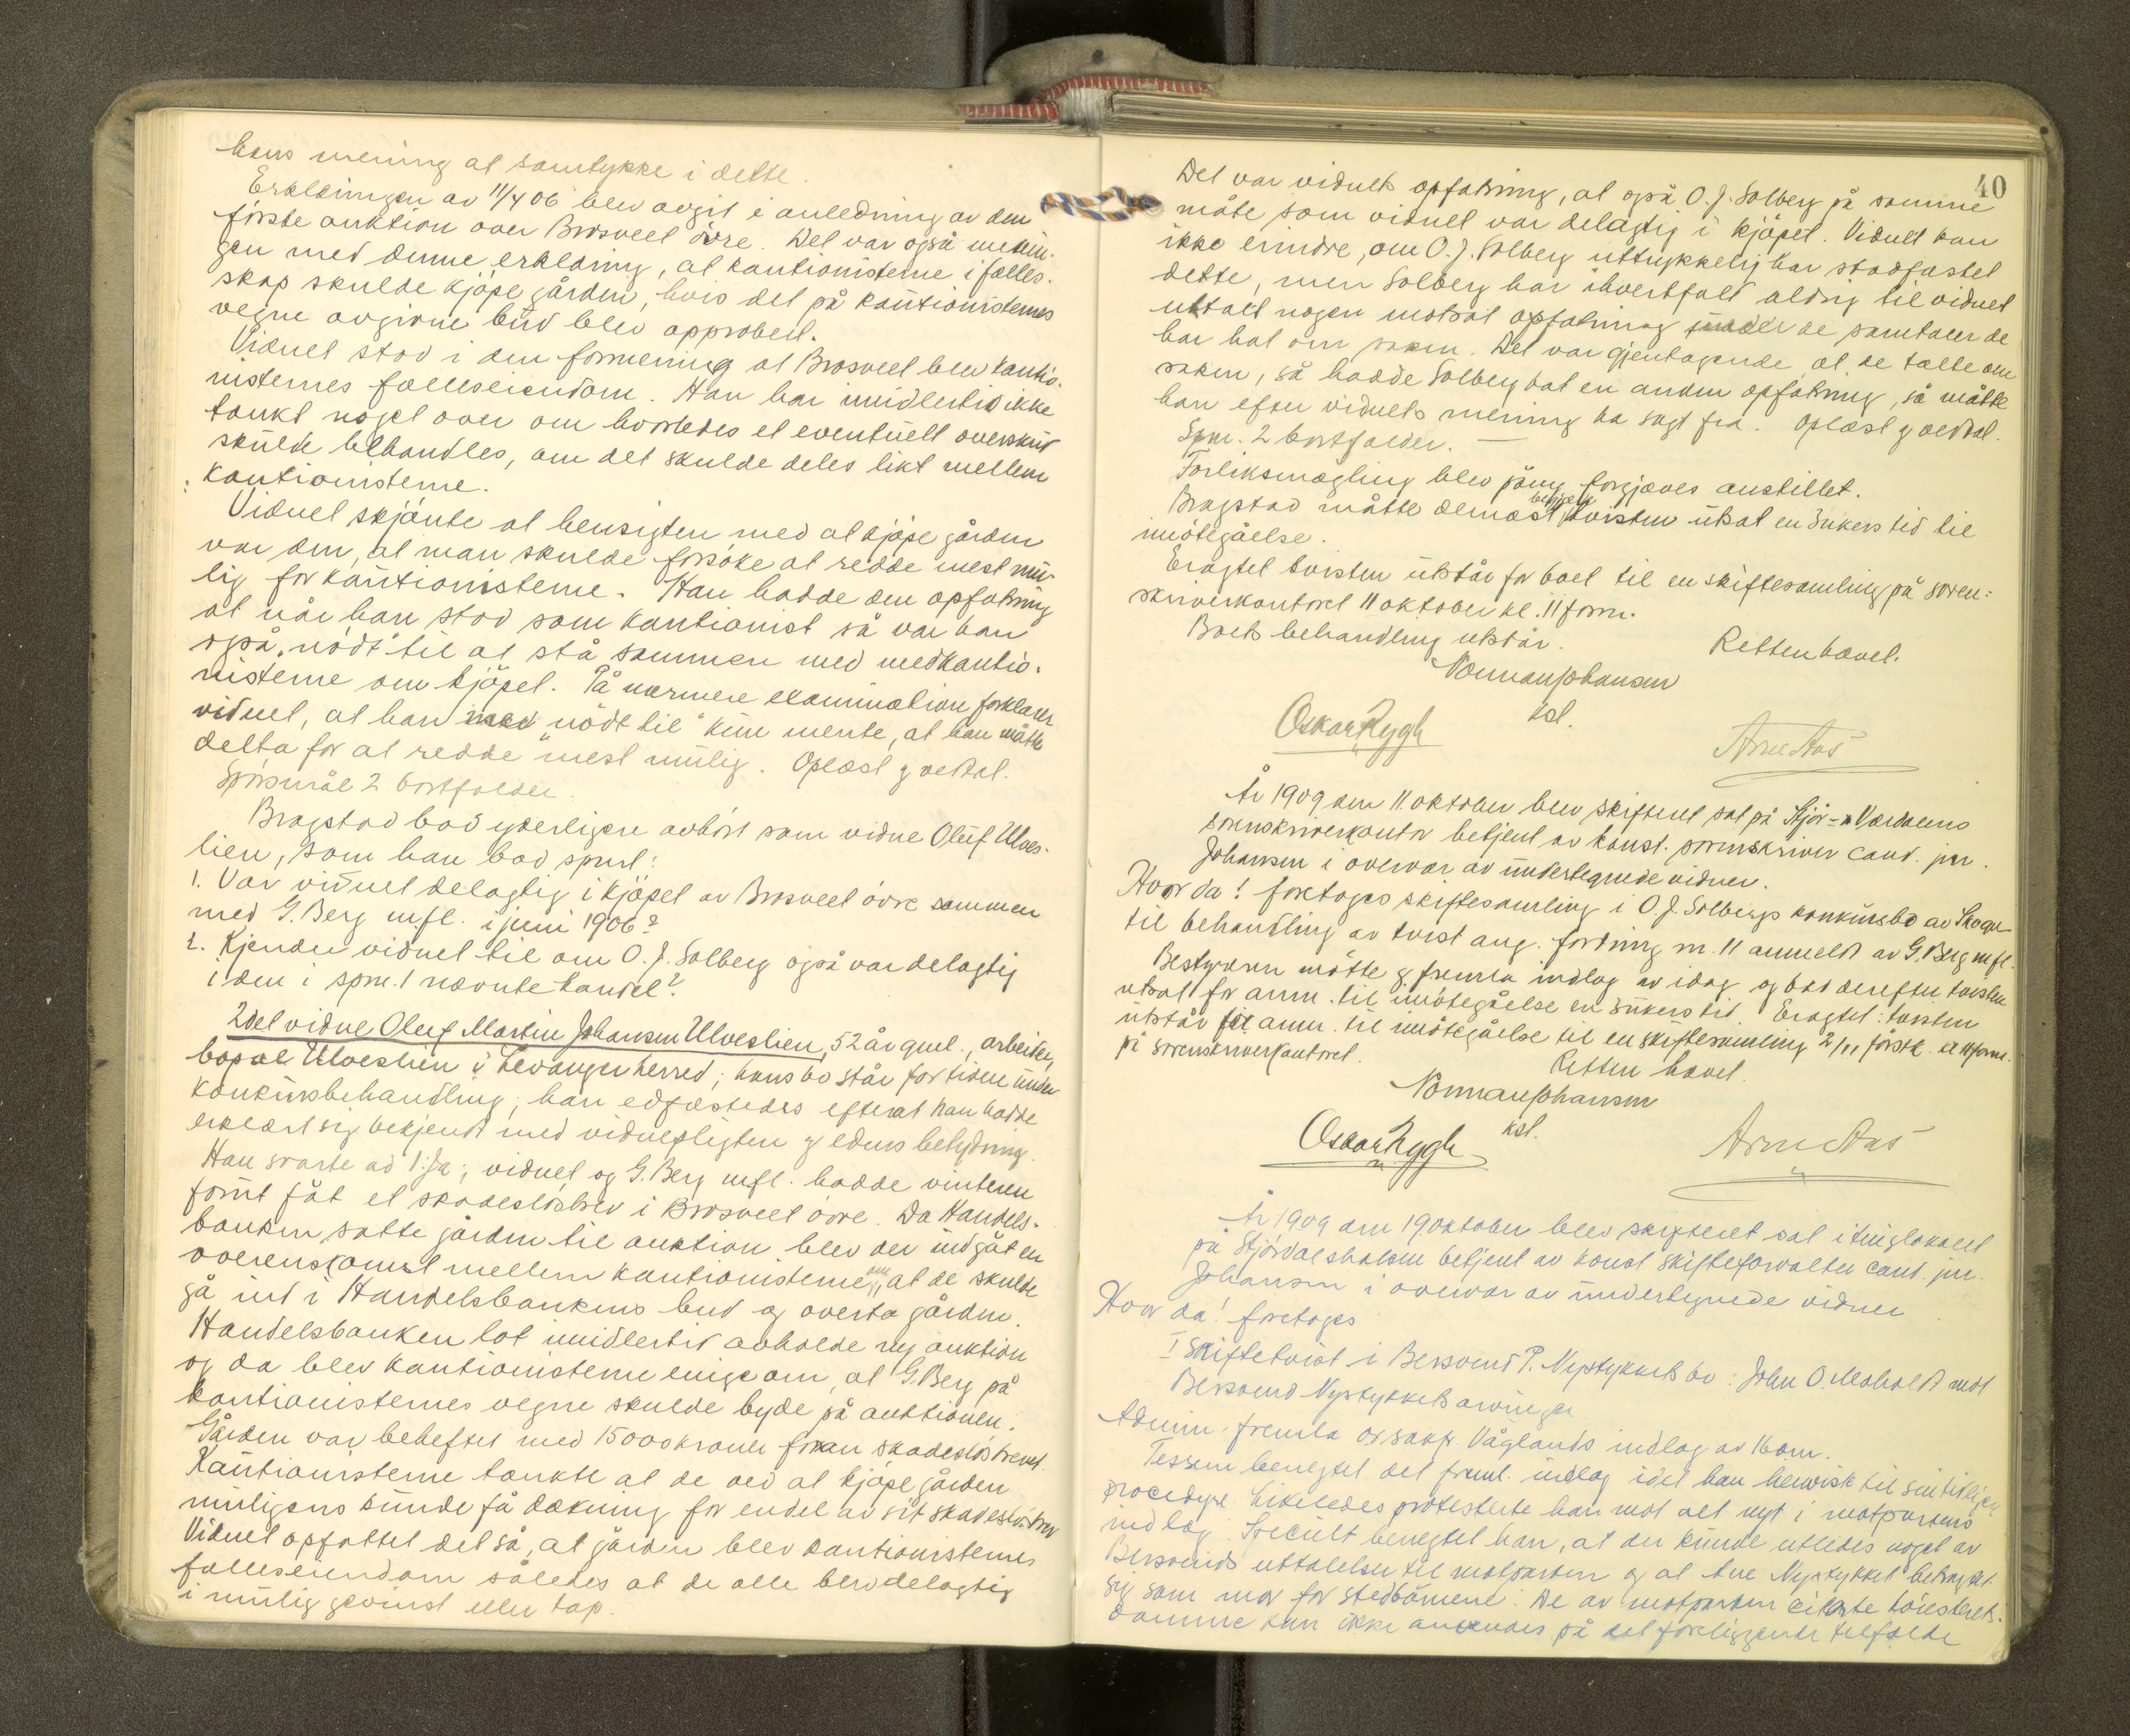 hans mening at samtykke i dette.
Erklæringen av 11/4 06 blev avgit i anledning av den
første auktion over Brosveet övre. Det var også menin-
gen med denne erklæring, at kautionisterne i fælles-
skap skulde kjöpe gården, hvis det på kautionisternes
vegne avgivne bud blev approbert.
Vidnet stod i den formening at Brosveet blev kautio-
nisternes fælleseiendom. Han har imidlertid ikke
tænkt noget over om hvorledes et eventuelt overskud
skulde behandles, om det skulde deles likt mellem
kautionisterne.
Vidnet skjönte at hensigten med at kjöpe gården
var den, at man skulde forsöke at redde mest mu-
lig for kautionisterne. Han hadde den opfatning
at når han stod som kautionist så var han
også "nödt" til at stå sammen med medkautio-
nisterne om kjöpet. På nærmere examination forklarer
vidnet, at han med "nödt til" kun mente, at han måtte
delta for at redde mest mulig. Oplæst g vedtat.
Spörsmål 2 bortfalder.
Bragstad bad yderligere avhört som vidne Oluf Ulves-
lien, som han bad spurt:
1. Var vidnet delagtig i kjöpet av Brosveet övre sammen
med G. Berg m.fl. i juni 1906?
2. Kjender vidnet til om O. J. Solberg også var delagtig
i den i spm. 1 nævnte handel?
2det vidne Oluf Martin Johansen Ulveslien, 52 år gml., arbeider,
bopæl Ulveslien i Levanger herred; hans bo står for tiden under
konkursbehandling; han edfæstedes efterat han hadde
erklært sig bekjendt med vidnepligten g edens betydning.
Han svarte ad 1: Ja; vidnet og G. Berg m.fl. hadde vinteren
forut fåt et skadeslösbrev i Brosveet övre. Da Handels-
banken satte gården til auktion blev der indgåt en
overenskomst mellem kautionisterne om, at de skulde
gå ind i Handelsbankens bud og overta gården.
Handelsbanken lot imidlertid avholde ny auktion
og da blev kautionisterne enige om, at G. Berg på
kautionisternes vegne skulde byde på auktionen.
Gården var beheftet med 15000 kroner foran skadeslösbrevet.
Kautionisterne tænkte at de ved at kjöpe gården
muligens kunde få dækning for endel av sit skadeslösbrev
Vidnet opfattet det så, at gården blev kautionisternes
fælleseiendom således at de alle blev delagtig
i mulig gevinst eller tap.
40
Det var vidnets opfatning, at også O. J. Solberg på samme
måte som vidnet var delagtig i kjöpet. Vidnet kan
ikke erindre, om O. J. Solberg uttrykkelig har stadfæstet
dette, men Solberg har ihvertfald aldrig til vidnet
uttalt nogen motsat opfatning under de samtaler de
har hat om saken. Det var gjentagende at de talte om
saken, så hadde Solberg hat en anden opfatning, så måtte
han efter vidnets mening ha sagt fra. Oplæst g vedtat.
Spm. 2 bortfalder. —
Forliksmægling blev påny forgjæves anstillet.
Bragstad måtte dernæst begjære tvisten utsat en 3 ukers tid til
imötegåelse.
Eragtet tvisten utstår for boet til en skiftesamling på soren-
skriverkontoret 11 oktober kl. 11 form.
Boets behandling utstår.
Retten hævet.
Norman Johansen
kst.
Oskar Rygh
Arne Aas
År 1909 den 11. oktober blev skifteret sat på Stjör- & Værdalens
sorenskriverkontor betjent av konst. sorenskriver cand. jur.
Johansen i overvær av undertegnede vidner.
Hvor da! foretoges skiftesamling i O. J. Solbergs konkursbo av Skogn
til behandling av tvist ang. fordring nr. 11 anmeldt av G. Berg m.fl.
Bestyreren mötte g fremla indlæg av idag og bad derefter tvisten
utsat for anm. til imötegåelse en 3 ukers tid. Eragtet: tvisten
utstår for anm. til imötegåelse til en skiftesamling 2/11 förstk. kl 11 form.
på sorenskriverkontoret.
Retten hævet.
Norman Johansen
kst.
Oskar Rygh
Arne Aas
År 1909 den 19 oktober blev skifteret sat i tinglokalet
på Stjördalshalsen betjent av konst skifteforvalter cand. jur.
Johansen i overvær av undertegnede vidner
Hvor da! foretoges
I Skiftetvist i Bersvend P. Nystykkets bo: John O. Mohaldt mot
Bersvend Nystykkets arvinger
Admin. fremla o.r.sakf. Våglands indlæg av 16 om.
Tessem benegtet det freml. indlæg idet han henviste til sin tidligere
procedyre. Likeledes protesterte han mot alt nyt i motpartens
indlæg. Specielt benegtet han, at der kunde utledes noget av
Bersvends uttalelser til motparten og at hve Nystykket betragtet
sig som mor for stedbörnene. De av motparten citerte höiesterets-
domme kan ikke anvendes på det foreliggende tilfælde